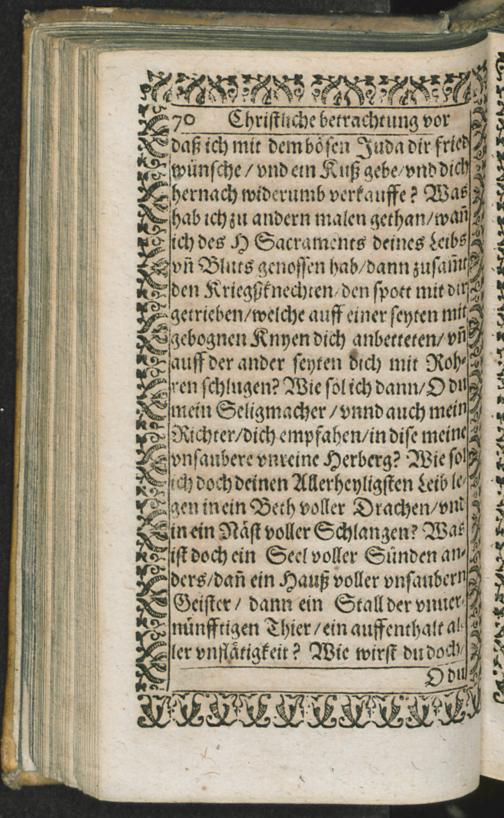 70 Christliche betrachtung vor
daß ich mit dem bösen Juda dir fried
wünsche / vnd ein Kuß gebe/vnd dich
hernach widerumb verkauffe? Was
hab ich zu andern malen gethan/wañ
ich des H Sacraments deines Leibs
vñ Bluts genossen hab/dann zusam̃t
den Kriegßknechten/den spott mit dir
getrieben/welche auff einer seyten mit
gebognen Knyen dich anbetteten/ vñ
auff der ander seyten dich mit Roh-
ren schlugen? Wie sol ich dann/O du
mein Seligmacher / vnnd auch mein
Richter/dich empfahen/in dise meine
vnsaubere vnreine Herberg? Wie sol
ich doch deinen Allerheyligsten Leib le-
gen in ein Beth voller Drachen/vnd
in ein Näst voller Schlangen? Was
ist doch ein Seel voller Sünden an-
ders/dañ ein Hauß voller vnsaubern
Geister / dann ein Stall der vnuer-
nünfftigen Thier/ein auffenthalt al-
ler vnflätigkeit? Wie wirst du doch/
O du